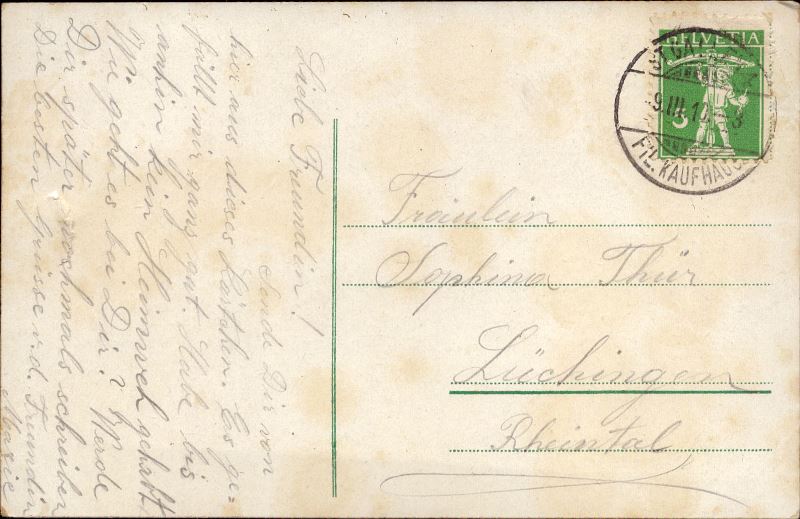 Liebe Freundin!
Sende Dir von
hier aus dieses Kärtchen. Es ge=
fällt mir ganz gut. Habe bis
anhin kein Heimweh gehabt.
Wie geht es bei Dir? Werde
Dir später nochmals schreiben
Die besten Grüsse v. d. Freundin
Marie
HELVETIA
5
ST. GALLEN
9.III.1
8
FIL. KAUFHAUS
Fräulein
Sophina Thür
Lüchingen
Rheintal